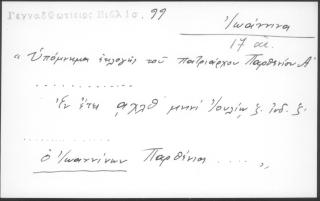 Γενναδίωτειος Βιβλιο. 99
Ἰωάννινα
17 αι.
"Ὑπόμνημα ἐκλογῆς τοῦ πατριάρχου Παρθενίου Α'
..........
Ἐν ἔτει αχλθ' μηνὶ Ἰουλίῳ ξ. ἰνδ. ξ.
..........
ὁ Ἰωαννίνων Παρθένιος ..... "